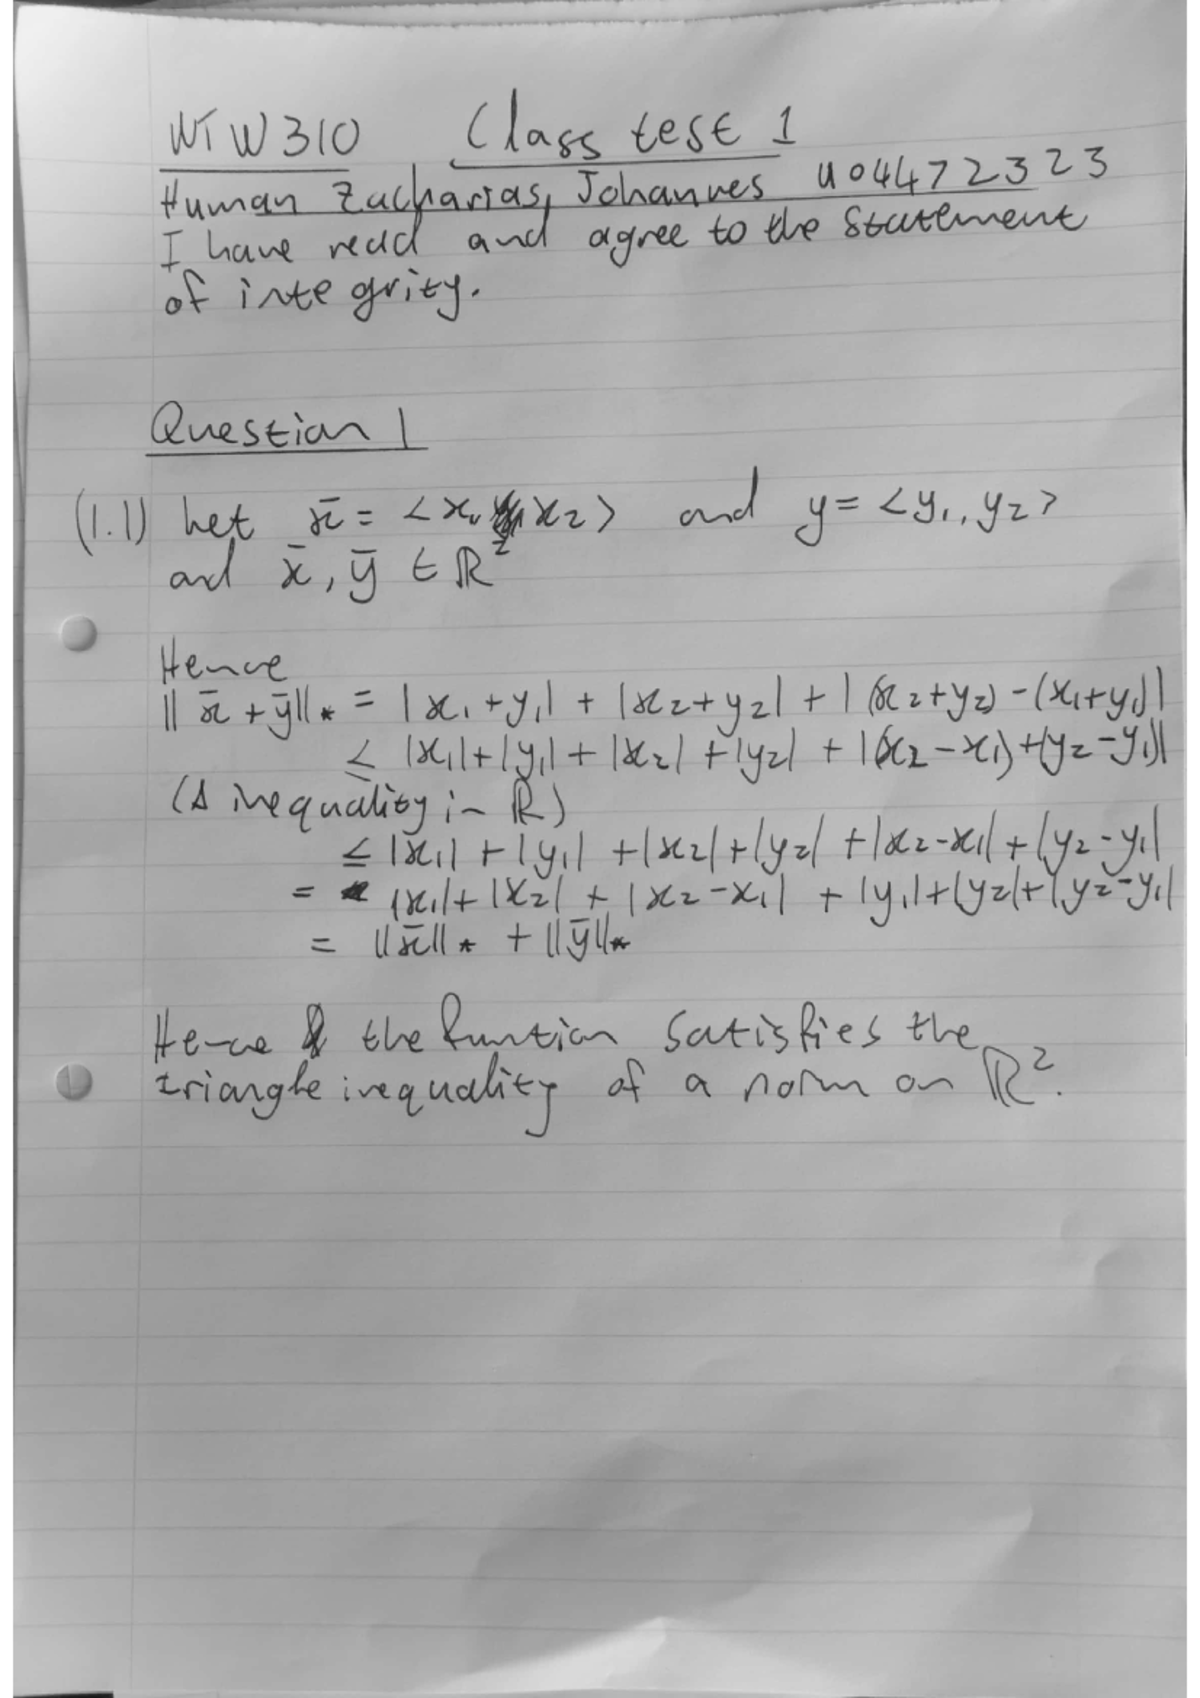 WTW310 Class test 1
Human Zacharias, Johannes u04472323
I have read and agree to the statement
of integrity.
Question 1
(1.1) Let x̄ = <x₁, x₂> and y = <y₁, y₂>
and x̄, ȳ ∈ ℝ²
Hence
||x̄ + ȳ||⋆ = |x₁+y₁| + |x₂+y₂| + |(x₂+y₂) - (x₁+y₁)|
≤ |x₁|+|y₁|+|x₂|+|y₂| + |(x₂-x₁)+(y₂-y₁)|
(Δ inequality in ℝ)
≤ |x₁| + |y₁| + |x₂|+|y₂| + |x₂-x₁| + |y₂-y₁|
= |x₁| + |x₂| + |x₂-x₁| + |y₁|+|y₂|+|y₂-y₁|
= ||x̄||⋆ + ||ȳ||⋆
Hence the funtion satisfies the
triangle inequality of a norm on ℝ².